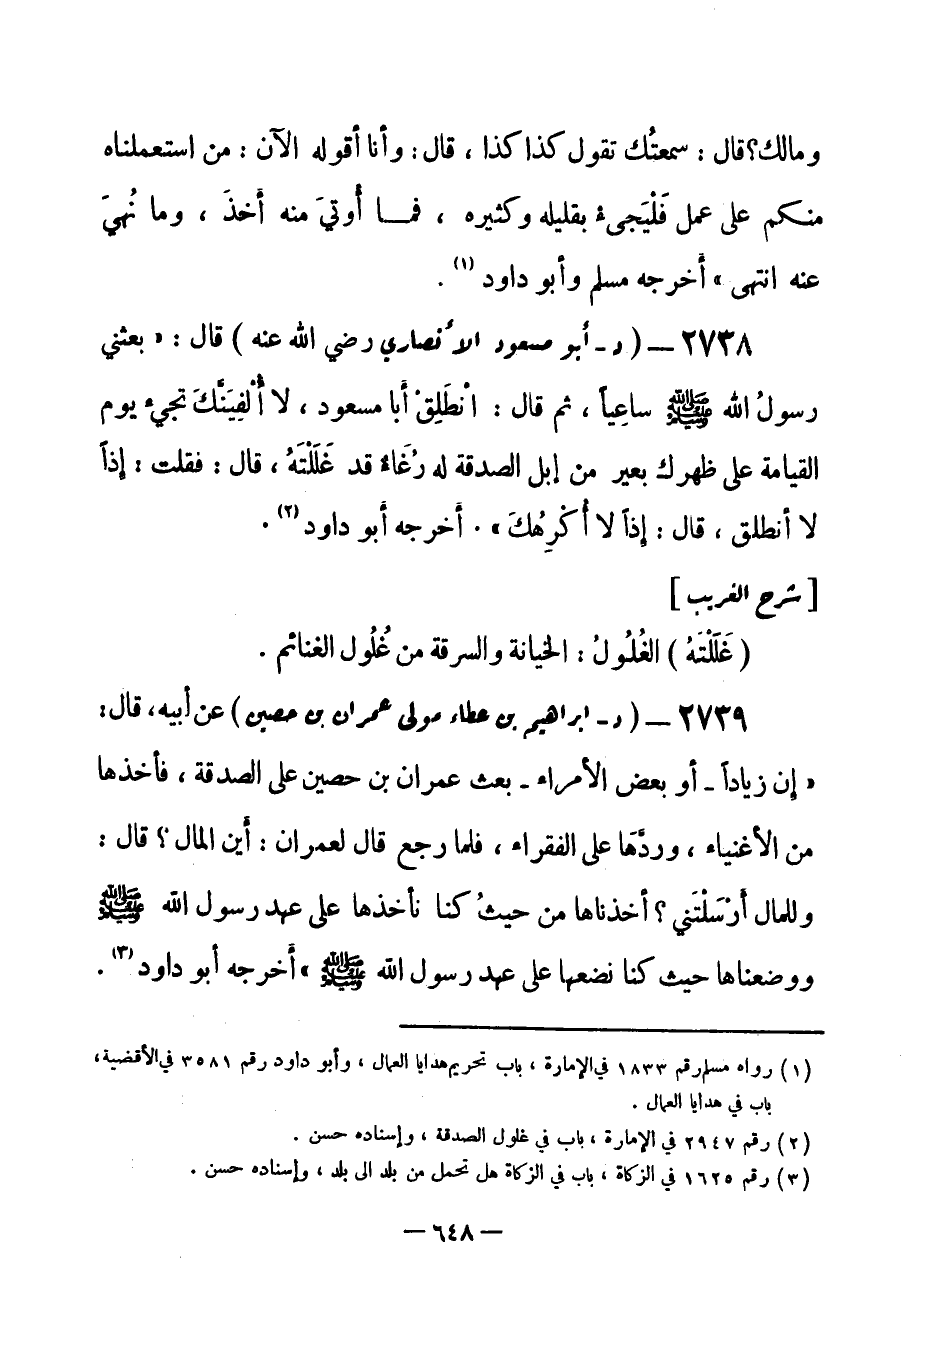 ومالك؟ قال : سمعتُك تقول كذا كذا ، قال : وأنا أقوله الآن : من استعملناه
منكم على عمل فَلْيَجىءْ بقليله وكثيره ، فمـا أُوتيَ منه أَخذَ ، وما نُهيَ
عنه انتهى » أخرجه مسلم وأبو داود (١) .
٢٧٣٨ — ( د - أبو مسعود الأنصاري رضي الله عنه ) قال : « بعثني
رسولُ الله ﷺ ساعِياً ، ثم قال : انْطَلِقْ أبا مسعود ، لا أُلْفِيَنَّكَ تجيء يوم
القيامة على ظهرك بعير من إبل الصدقة له رُغَاءٌ قد غَلَلْتَهُ ، قال : فقلت : إذاً
لا أنطلق ، قال : إذاً لا أُكْرِهُكَ » . أخرجه أبو داود (٢) .
[ شرح الغريب ]
( غَلَلْتَهُ ) الغُلُولُ : الخيانة والسرقة من غُلُول الغنائم .
٢٧٣٩ — ( د - ابراهيم بن عطاء مولى عمران بن حصين ) عن أبيه، قال:
« إن زياداً - أو بعض الأمراء - بعث عمران بن حصين على الصدقة ، فأخذها
من الأغنياء ، وردَّها على الفقراء ، فلما رجع قال لعمران : أين المال ؟ قال :
وللمال أَرْسَلْتَني ؟ أخذناها من حيثُ كنا نأخذها على عهد رسول الله ﷺ
ووضعناها حيث كنا نضعها على عهد رسول الله ﷺ » أخرجه أبو داود (٣) .
(١) رواه مسلم رقم ١٨٣٣ في الإمارة ، باب تحريم هدايا العمال ، وأبو داود رقم ٣٥٨١ في الأقضية،
باب في هدايا العمال .
(٢) رقم ٢٩٤٧ في الإمارة ، باب في غلول الصدقة ، وإسناده حسن .
(٣) رقم ١٦٢٥ في الزكاة ، باب في الزكاة هل تحمل من بلد الى بلد ، وإسناده حسن .
— ٦٤٨ —